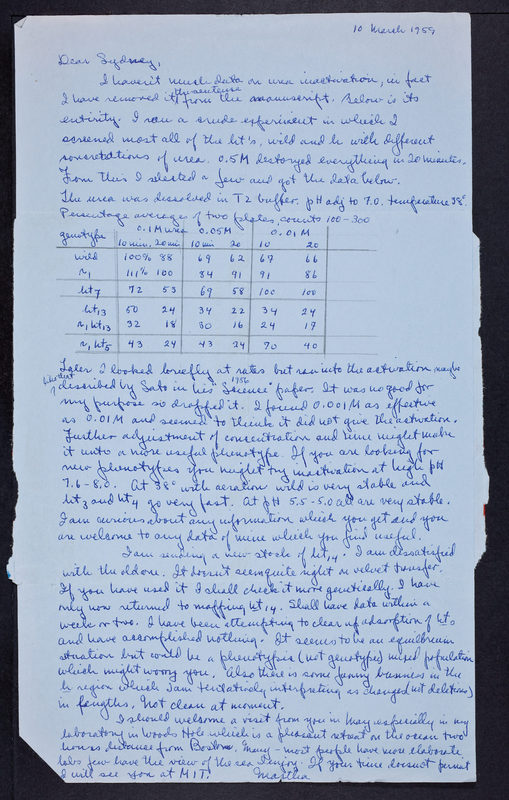 10 March 1959
Dear Sydney,
I haven't much data on urea inactivation, in fact
the sentence
I have removed it from the manuscript. Below is its
entirity. I ran a crude experiment in which I
screened most all of the ht's, wild and h with different
concentrations of urea. 0.5M destoryed everything in 20 minutes.
From this I selected a few and got the data below.
The urea was dissolved in T2 buffer. pH adj to 7.0. temperature 38°.
Percentage averages of two plates, counts 100-300
genotype 0.1M urea 0.05M 0.01M
10 min, 20 min 10 min 20 10 20
wild 100% 88 69 62 67 66
r1 111% 100 84 91 91 86
ht7 72 53 69 58 100 100
ht13 50 24 34 22 34 24
r1 ht13 32 18 30 16 24 17
r1 ht5 43 24 43 24 70 40
Later I looked briefly at rates but ran into the activation maybe
described by Sato in his 1956 "Science" paper. It was no good for
my purpose so dropped it. I found 0.001M as effective
as 0.01M and seemed to think it did not give the activation.
Further adjustment of concentration and time might make
it into a more useful phenotype. If you are looking for
new phenotypes you might try inactivation at high pH
7.6-8.0. At 38° with aeration wild is very stable and
ht3 and ht4 go very fast. At pH 5.5-5.0 all are very stable.
I am curious about any information which you get and you
are welcome to any data of mine which you find useful.
I am sending a new stock of ht14. I am dissatisfied
with the old one. It doesn't seem quite right on velvet transfer.
If you have used it I shall check it more genetically. I have
only now returned to mapping ht14. Shall have data within a
week or two. I have been attempting to clear up adsorption of ht's
and have accomplished nothing. It seems to be an equilbrium
situation but could be a phenotypic (not genotypic) mixed population
which might worry you. Also there is some funny business in the
h region which I am tentatively interpreting as changes (not deletions)
in lengths. Not clean at moment.
I should welcome a visit from you in May especially in my
laboratory in Woods Hole which is a pleasant retreat on the ocean two
hours distance from Boston. Many - most people have more elaborate
labs few have the view of the sea I enjoy. If your time doesn't permit
I will see you at MIT. Martha